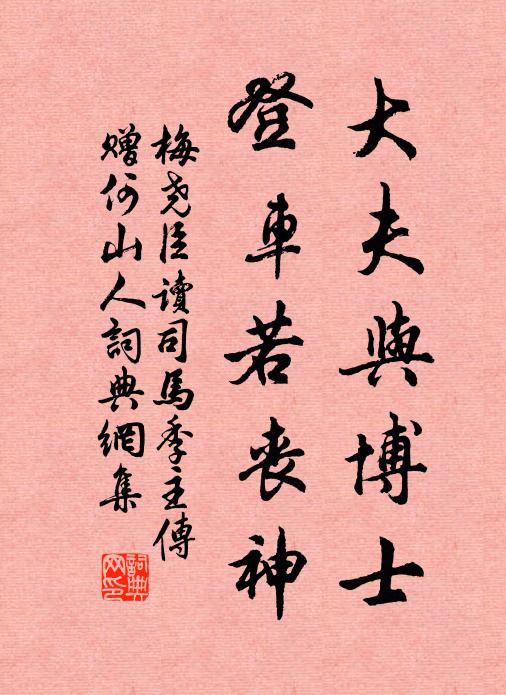 大夫與博士
登車若喪神
梅堯臣讀司馬季主傳
贈何山人詞典網集
詞典
网印